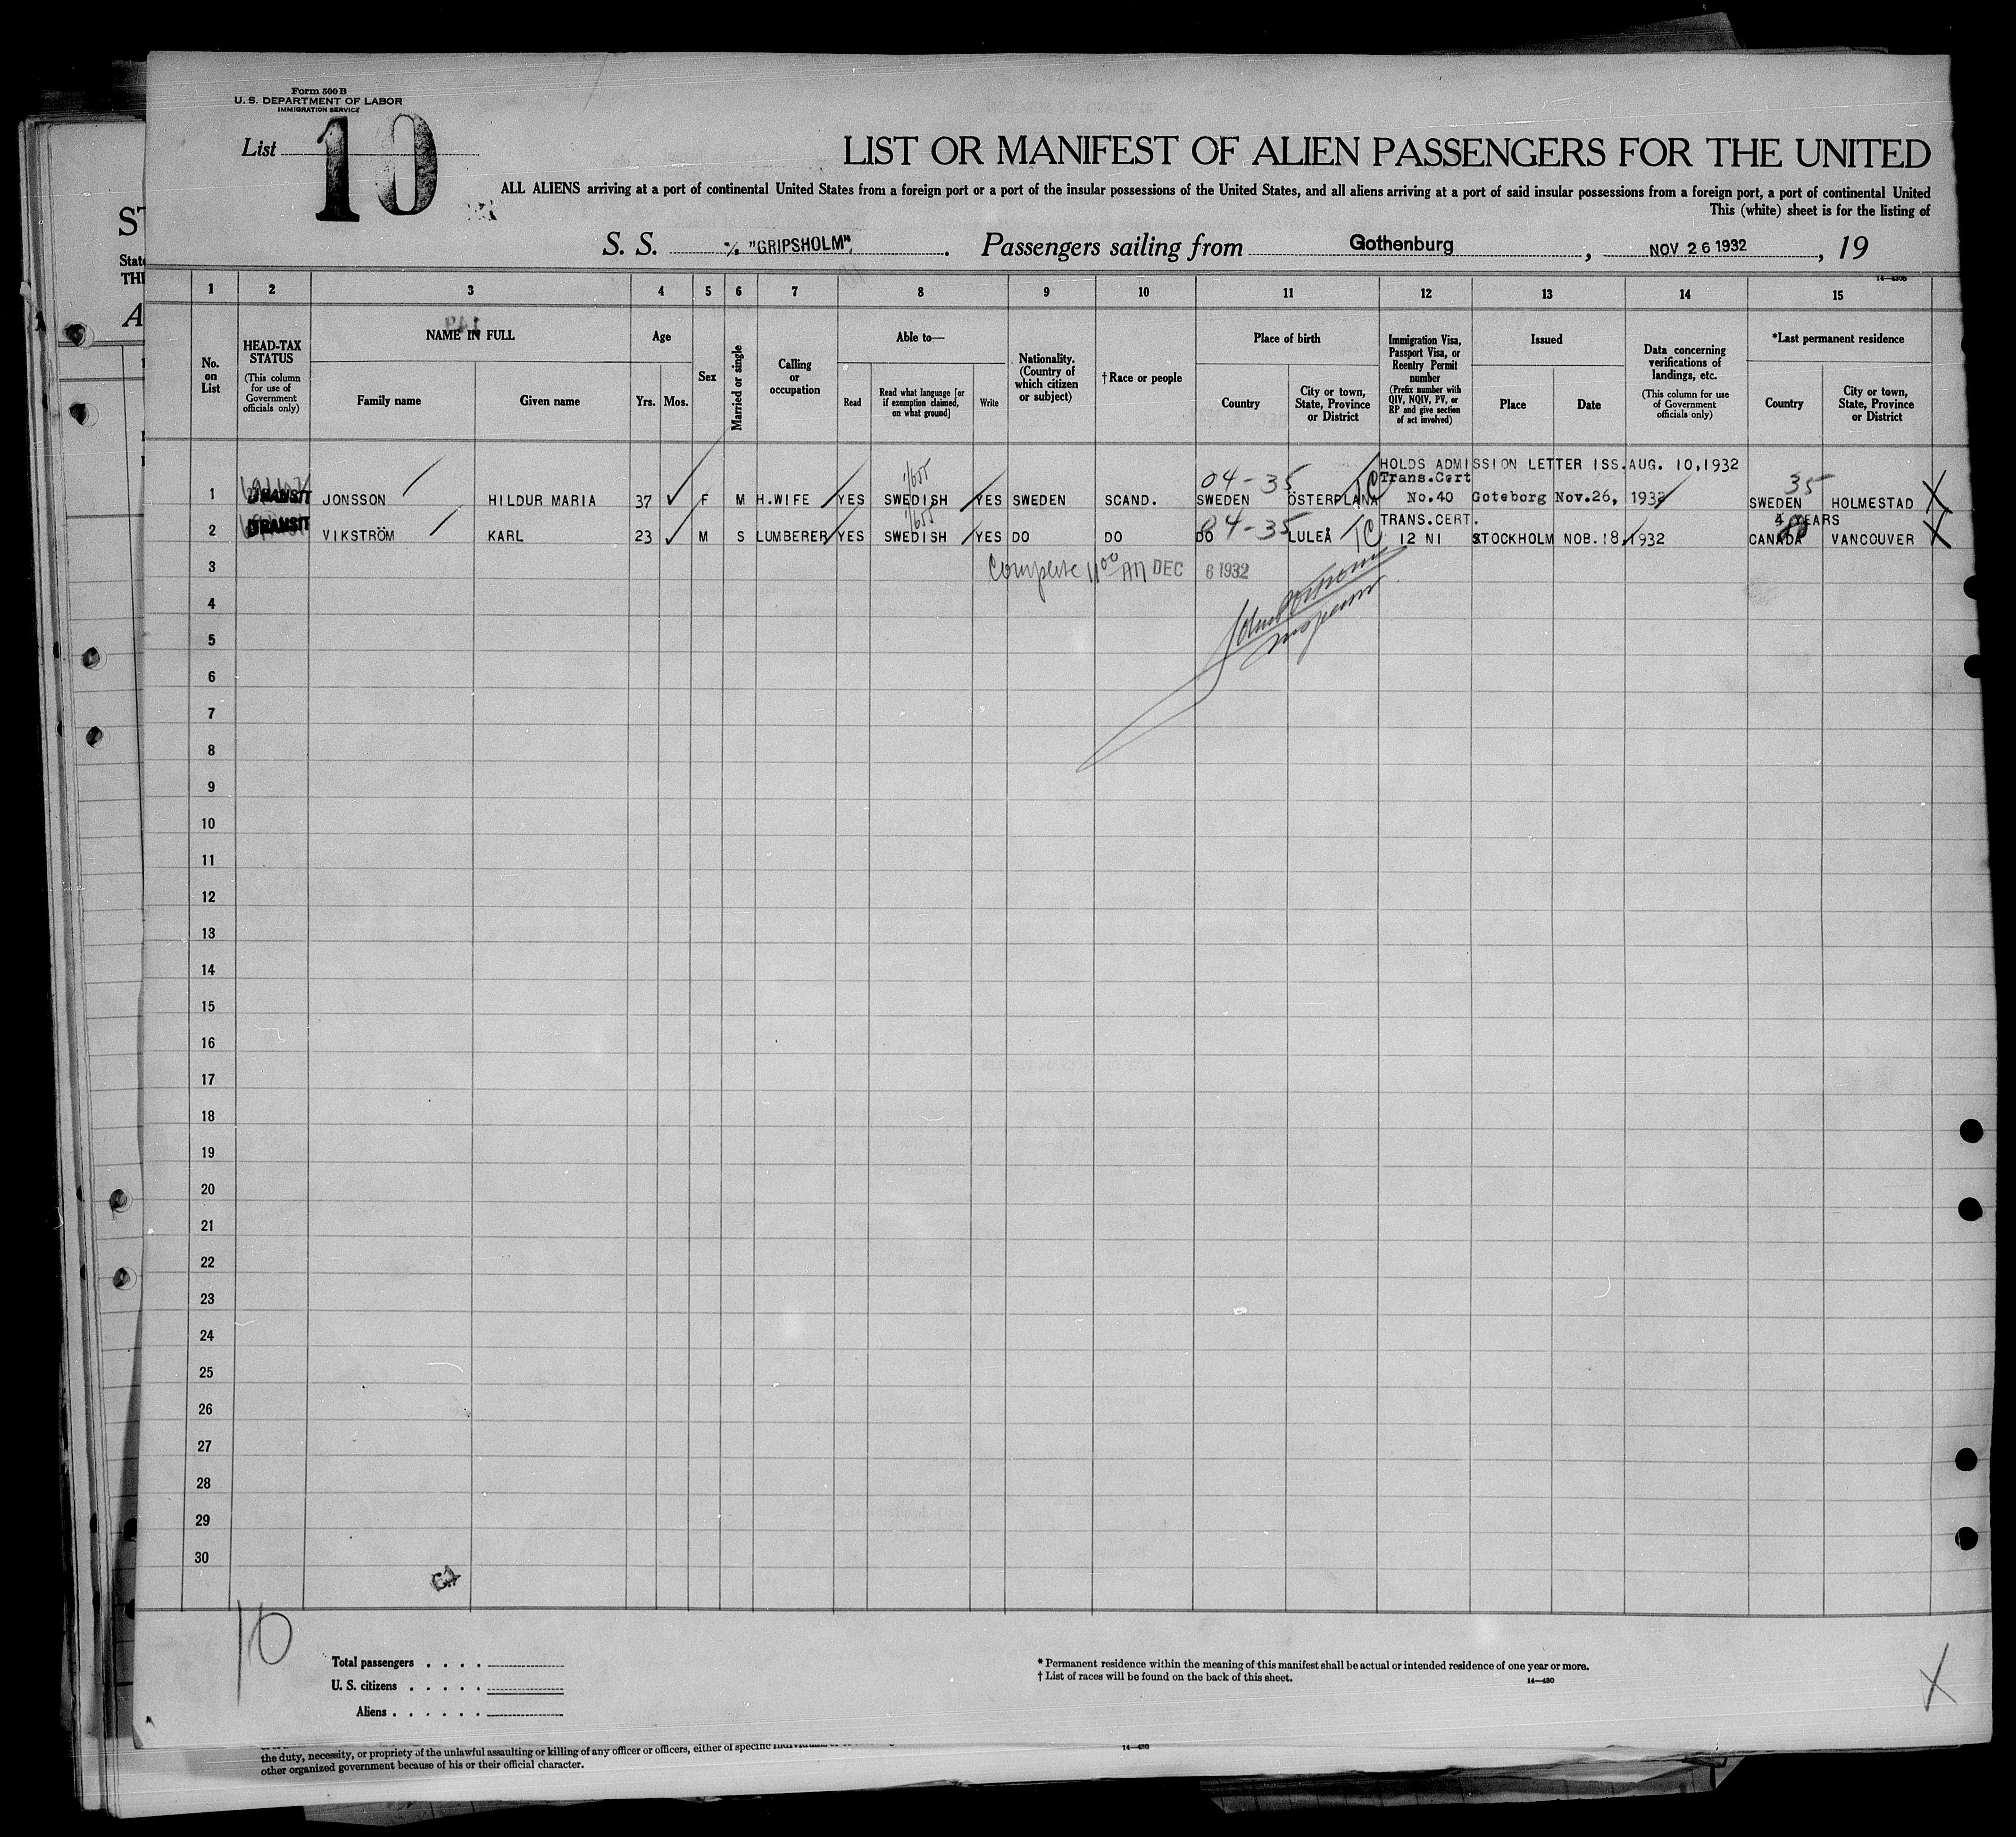 Form 500 B
U. S. DEPARTMENT OF LABOR
IMMIGRATION SERVICE
List 10
LIST OR MANIFEST OF ALIEN PASSENGERS FOR THE UNITED
ALL ALIENS arriving at a port of continental United States from a foreign port or a port of the insular possessions of the United States, and all aliens arriving at a port of said insular possessions from a foreign port, a port of continental United
This (white) sheet is for the listing of
S. S. "GRIPSHOLM", Passengers sailing from Gothenburg, NOV 26 1932, 19
14—430b
1 2 3 4 5 6 7 8 9 10 11 12 13 14 15
No. on List
HEAD-TAX STATUS (This column for use of Government officials only)
NAME IN FULL
Family name Given name
Age
Yrs. Mos.
Sex
Married or single
Calling or occupation
Able to—
Read
Read what language [or if exemption claimed, on what ground]
Write
Nationality. (Country of which citizen or subject)
†Race or people
Place of birth
Country
City or town, State, Province or District
Immigration Visa, Passport Visa, or Reentry Permit number (Prefix number with QIV, NQIV, PV, or RP and give section of act involved)
Issued
Place Date
Data concerning verifications of landings, etc. (This column for use of Government officials only)
*Last permanent residence
Country
City or town, State, Province or District
HOLDS ADMISSION LETTER ISS. AUG. 10, 1932
04-35 TC Trans.Cert 35
1 TRANSIT JONSSON HILDUR MARIA 37 F M H.WIFE YES SWEDISH YES SWEDEN SCAND. SWEDEN ÖSTERPLANA No.40 Goteborg Nov.26, 1932 SWEDEN HOLMESTAD X
04-35 TC TRANS.CERT. 4 YEARS
2 TRANSIT VIKSTRÖM KARL 23 M S LUMBERER YES SWEDISH YES DO DO DO LULEÅ 12 NI STOCKHOLM NOB.18, 1932 CANADA VANCOUVER X
3 Complete 11 00 AM DEC 6 1932
4
5
6
7
8
9
10
11
12
13
14
15
16
17
18
19
20
21
22
23
24
25
26
27
28
29
30
10
Total passengers
U. S. citizens
Aliens
* Permanent residence within the meaning of this manifest shall be actual or intended residence of one year or more.
† List of races will be found on the back of this sheet.
14—430
X
the duty, necessity, or propriety of the unlawful assaulting or killing of any officer or officers, either of specific
other organized government because of his or their official character.
14—430